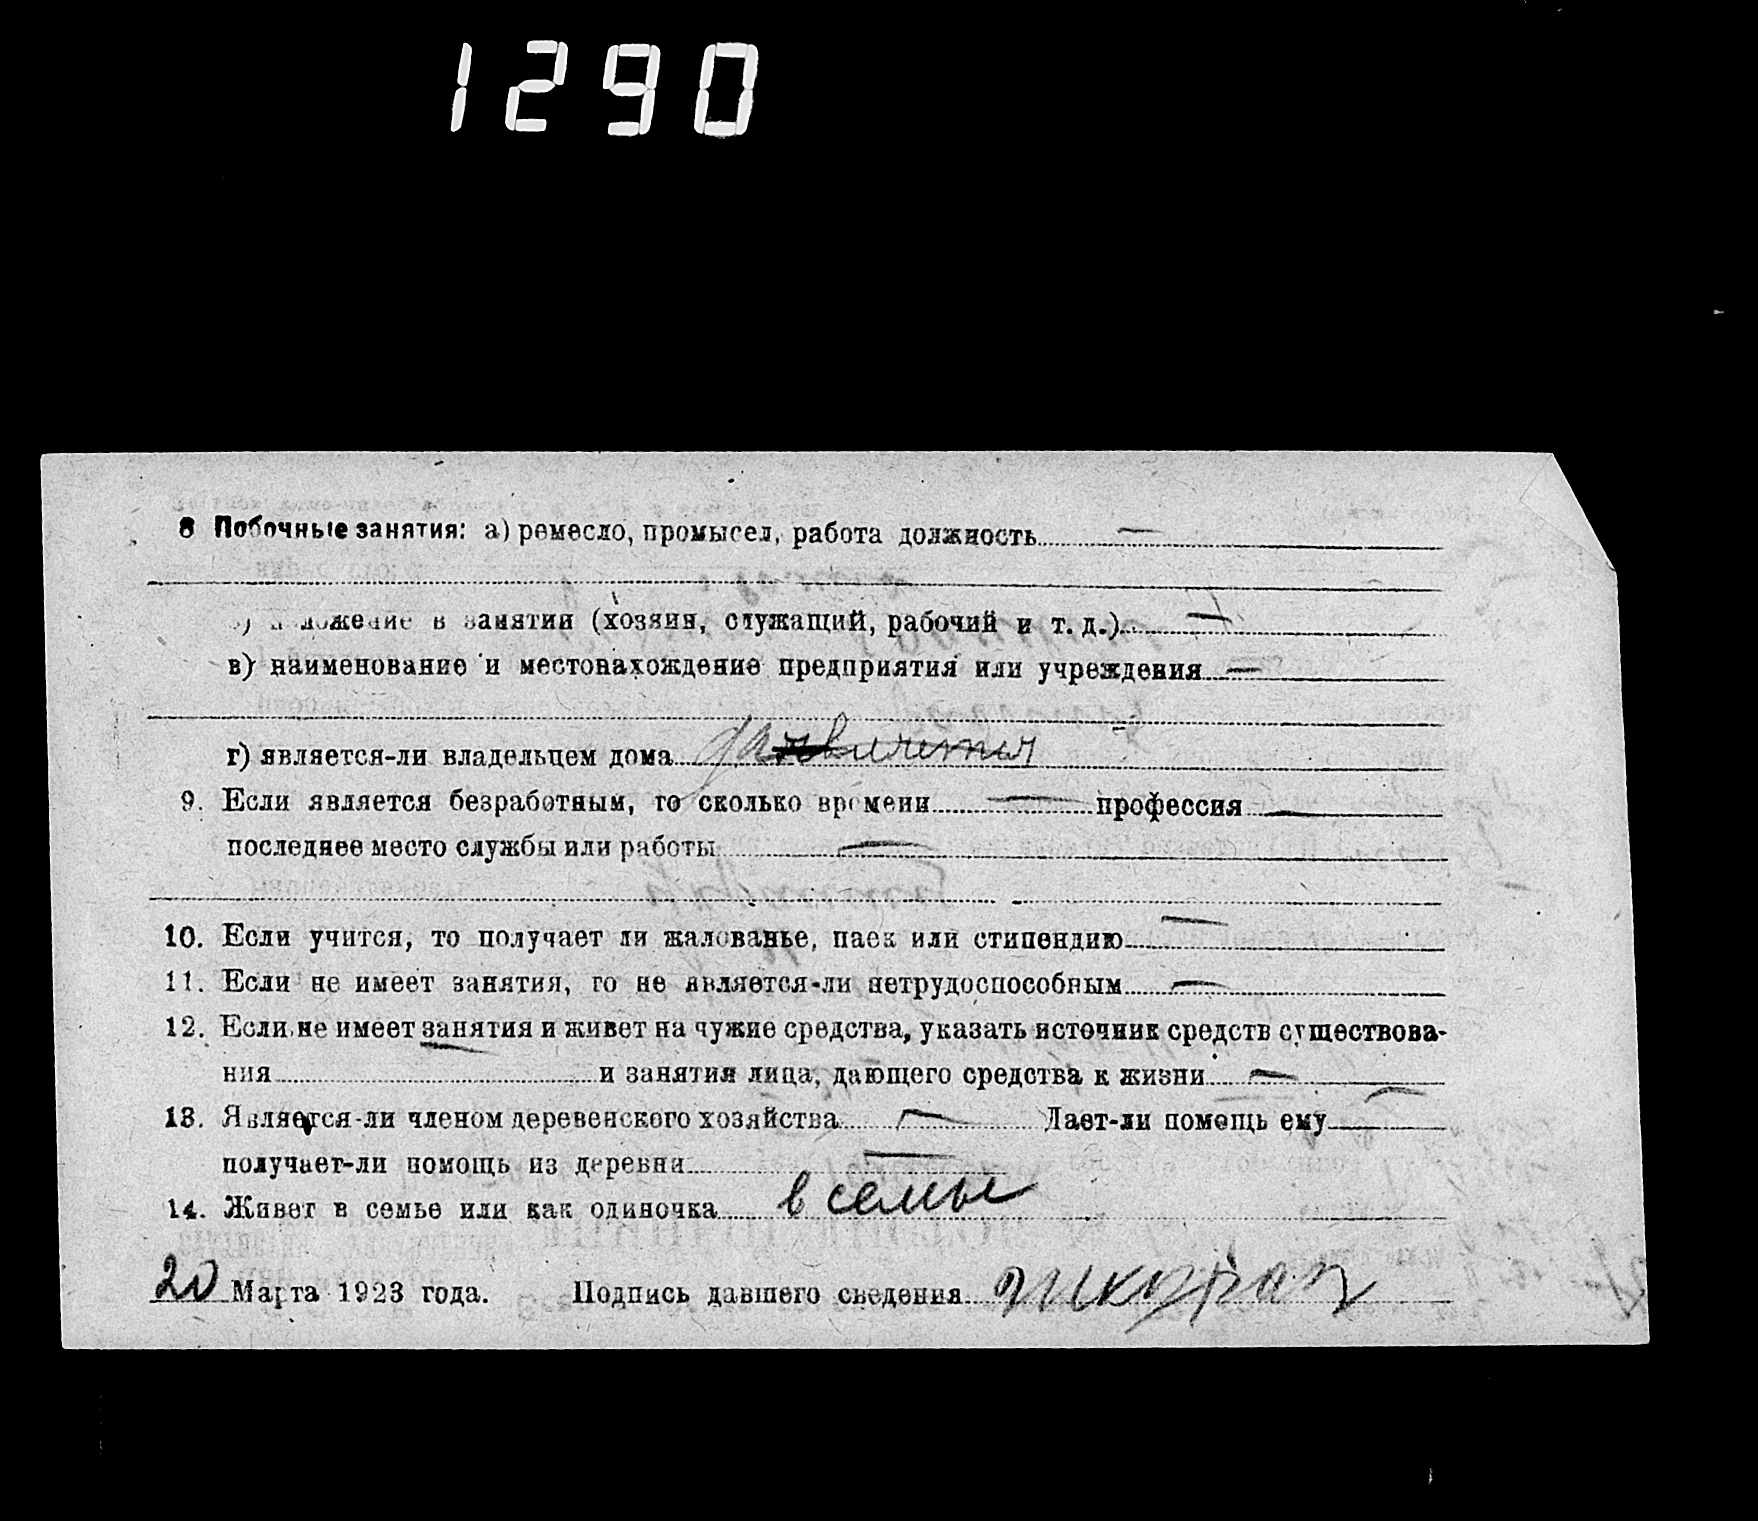 1290
8 Побочные занятия: а) ремесло, промысел, работа должность —
положение в занятии (хозяин, служащий, рабочий и т. д.) —
в) наименование и местонахождение предприятия или учреждения —
г) является-ли владельцем дома да
9. Если является безработным, то сколько времени — профессия —
последнее место службы или работы —
10. Если учится, то получает ли жалованье, паек или стипендию —
11. Если не имеет занятия, то не является-ли нетрудоспособным —
12. Если не имеет занятия и живет на чужие средства, указать источник средств существова-
ния — и занятия лица, дающего средства к жизни —
13. Является-ли членом деревенского хозяйства — Дает-ли помощь ему —
получает-ли помощь из деревни —
14. Живет в семье или как одиночка в семье
20 Марта 1923 года. Подпись давшего сведения